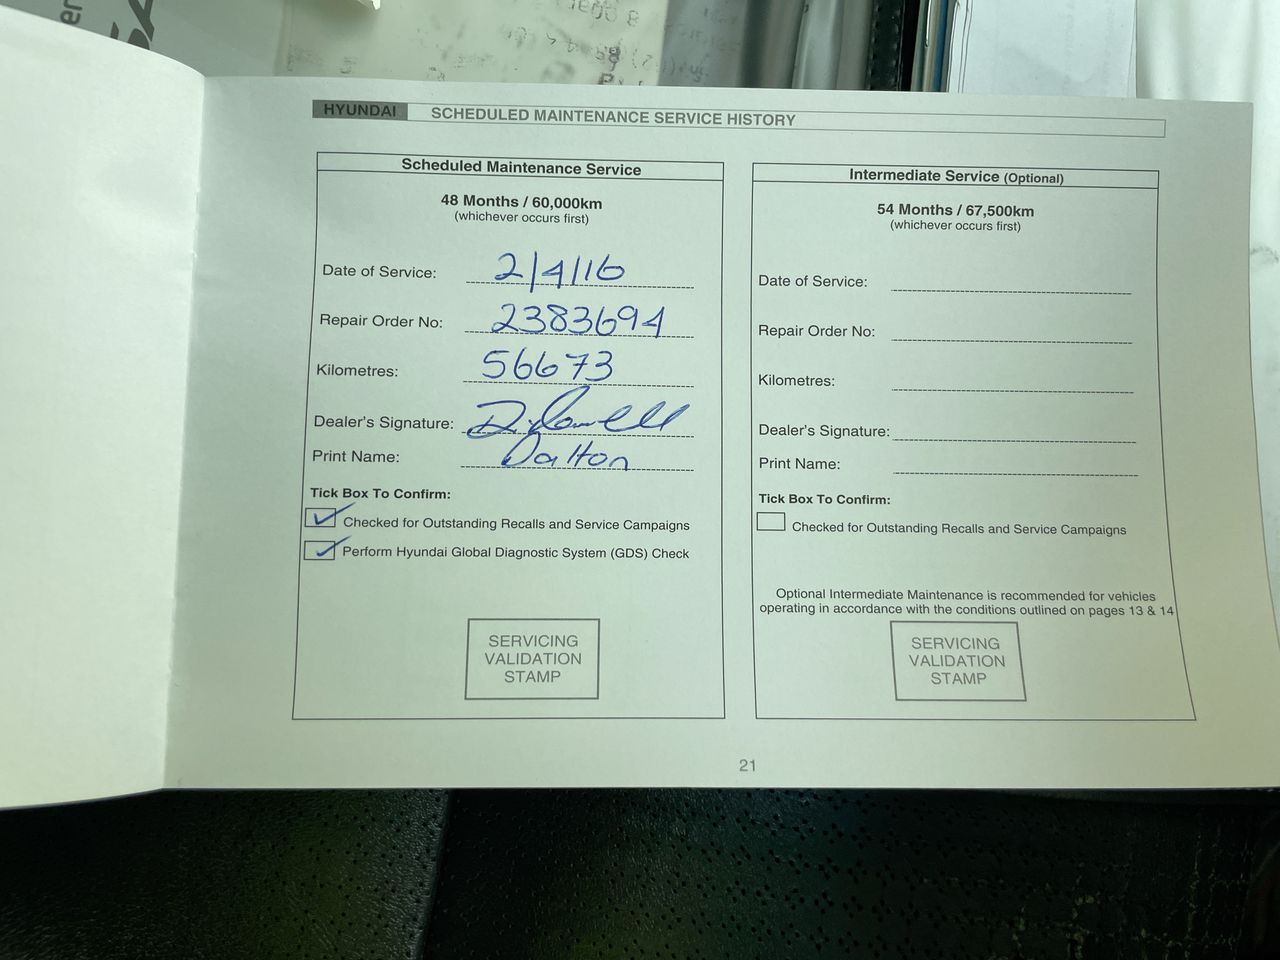 HYUNDAI SCHEDULED MAINTENANCE SERVICE HISTORY
Scheduled Maintenance Service
48 Months / 60,000km
(whichever occurs first)
Date of Service: 2/4/16
Repair Order No: 2383694
Kilometres: 56673
Dealer's Signature:
Print Name: Dalton
Tick Box To Confirm:
Checked for Outstanding Recalls and Service Campaigns
Perform Hyundai Global Diagnostic System (GDS) Check
SERVICING
VALIDATION
STAMP
Intermediate Service (Optional)
54 Months / 67,500km
(whichever occurs first)
Date of Service:
Repair Order No:
Kilometres:
Dealer's Signature:
Print Name:
Tick Box To Confirm:
Checked for Outstanding Recalls and Service Campaigns
Optional Intermediate Maintenance is recommended for vehicles
operating in accordance with the conditions outlined on pages 13 & 14
SERVICING
VALIDATION
STAMP
21